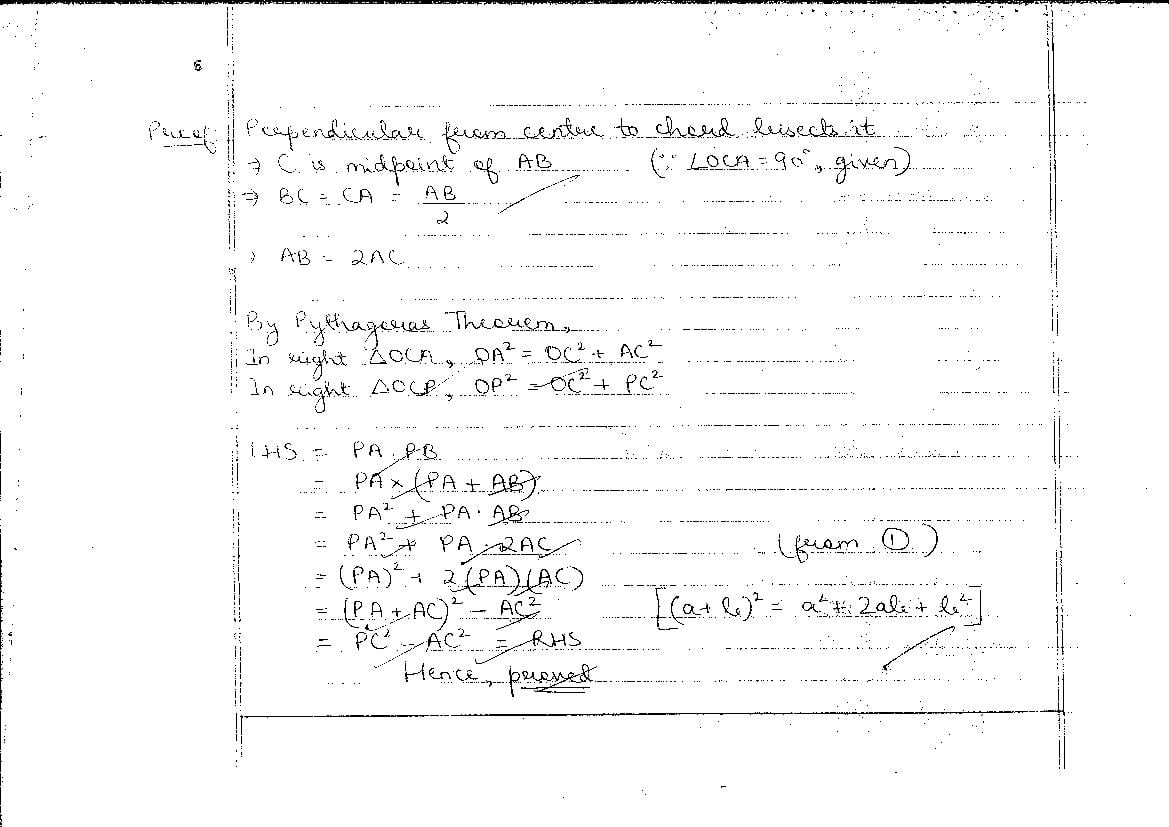 8
Proof Perpendicular from centre to chord bisects it
→ C is midpoint of AB (∵ ∠OCA = 90°, given)
⇒ BC = CA = AB/2
⇒ AB = 2AC
By Pythagoras Theorem,
In right △OCA, OA² = OC² + AC²
In right △OCP, OP² = OC² + PC²
LHS = PA . PB
= PA × (PA + AB)
= PA² + PA · AB
= PA² + PA · 2AC (from ①)
= (PA)² + 2(PA)(AC)
= (PA + AC)² - AC² [(a+b)² = a² + 2ab + b²]
= PC² - AC² = RHS
Hence, proved